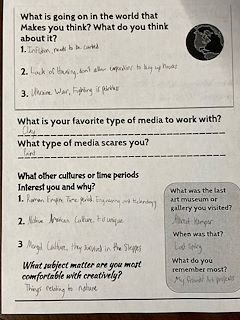 What is going on in the world that
Makes you think? What do you think
about it?
1. Inflation, needs to be controled
2. Lack of Housing, don't allow corporations to buy up houses
3. Ukraine War, Fighting is pointless
What is your favorite type of media to work with?
Clay
What type of media scares you?
Paint
What other cultures or time periods
Interest you and why?
1. Roman Empire Time period, Engineering and technology
2. Native American Culture, it's unique
3. Mongol Culture, they survived in the Steppes
What subject matter are you most
comfortable with creatively?
Things relating to nature
What was the last
art museum or
gallery you visited?
When was that?
Last Spring
What do you
remember most?
My friends' Art projects